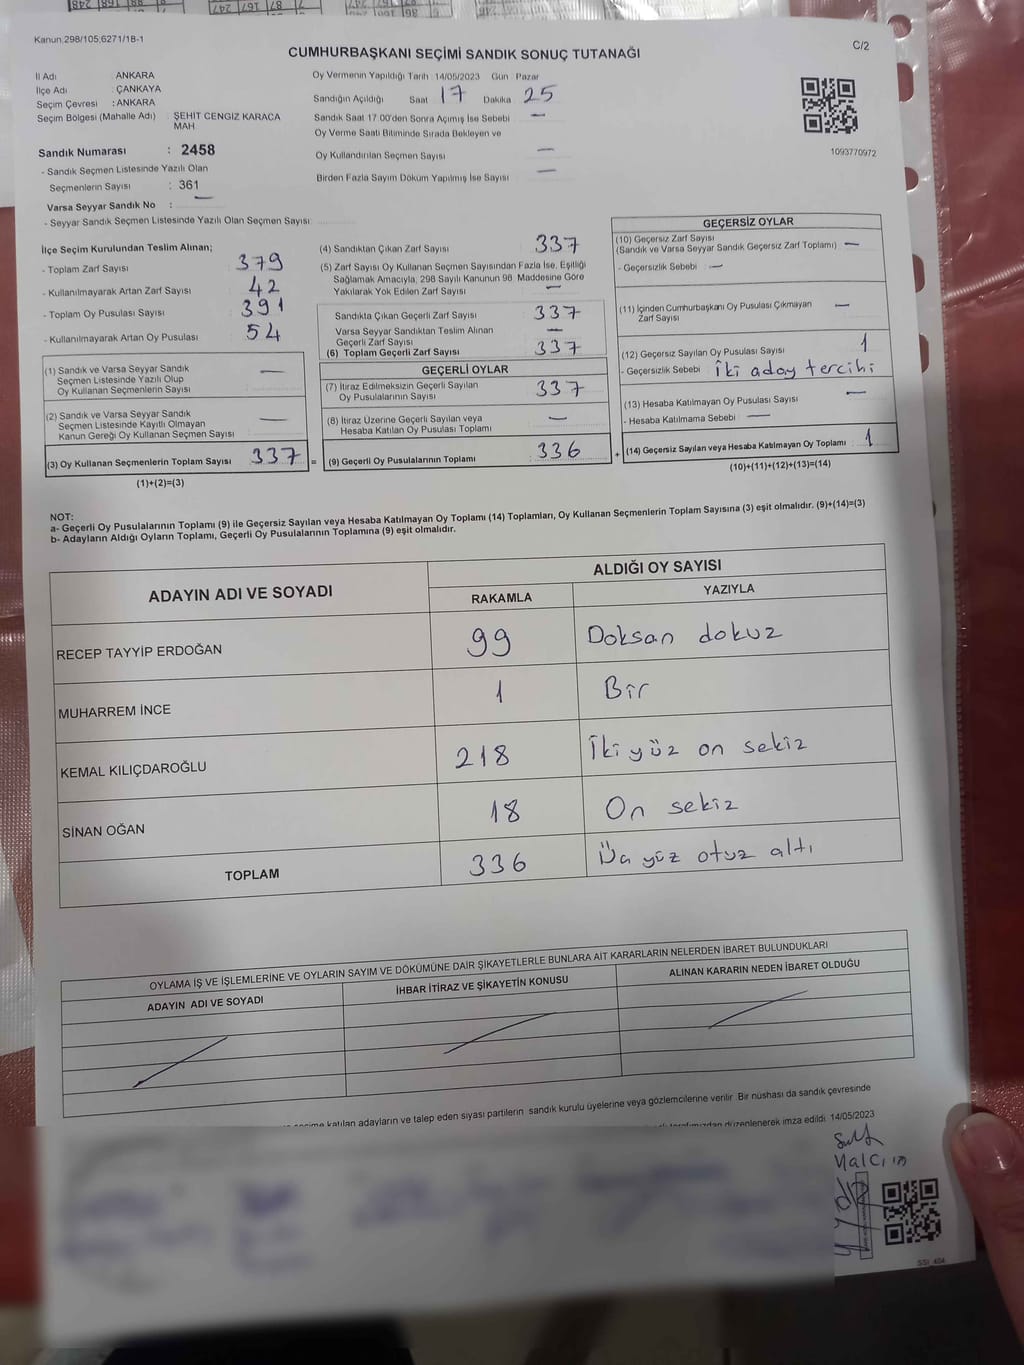 Kanun 298/105,6271/18-1
C/2
CUMHURBAŞKANI SEÇİMİ SANDIK SONUÇ TUTANAĞI
İl Adı : ANKARA
İlçe Adı : ÇANKAYA
Seçim Çevresi : ANKARA
Seçim Bölgesi (Mahalle Adı) : ŞEHİT CENGİZ KARACA
MAH.
Sandık Numarası : 2458
- Sandık Seçmen Listesinde Yazılı Olan
Seçmenlerin Sayısı : 361
Varsa Seyyar Sandık No : —
- Seyyar Sandık Seçmen Listesinde Yazılı Olan Seçmen Sayısı:
Oy Vermenin Yapıldığı Tarih : 14/05/2023 Gün : Pazar
Sandığın Açıldığı Saat 17 Dakika 25
Sandık Saat 17:00'den Sonra Açımış İse Sebebi —
Oy Verme Saati Bitiminde Sırada Bekleyen ve
Oy Kullandırılan Seçmen Sayısı —
Birden Fazla Sayım Döküm Yapılmış İse Sayısı —
1093770972
İlçe Seçim Kurulundan Teslim Alınan;
- Toplam Zarf Sayısı 379
- Kullanılmayarak Artan Zarf Sayısı 42
- Toplam Oy Pusulası Sayısı 391
- Kullanılmayarak Artan Oy Pusulası 54
(1) Sandık ve Varsa Seyyar Sandık
Seçmen Listesinde Yazılı Olup
Oy Kullanan Seçmenlerin Sayısı —
(2) Sandık ve Varsa Seyyar Sandık
Seçmen Listesinde Kayıtlı Olmayan
Kanun Gereği Oy Kullanan Seçmen Sayısı —
(3) Oy Kullanan Seçmenlerin Toplam Sayısı 337 =
(1)+(2)=(3)
(4) Sandıktan Çıkan Zarf Sayısı 337
(5) Zarf Sayısı Oy Kullanan Seçmen Sayısından Fazla İse, Eşitliği
Sağlamak Amacıyla; 298 Sayılı Kanunun 98. Maddesine Göre
Yakılarak Yok Edilen Zarf Sayısı —
Sandıkta Çıkan Geçerli Zarf Sayısı 337
Varsa Seyyar Sandıktan Teslim Alınan
Geçerli Zarf Sayısı —
(6) Toplam Geçerli Zarf Sayısı 337
GEÇERLİ OYLAR
(7) İtiraz Edilmeksizin Geçerli Sayılan
Oy Pusulasının Sayısı 337
(8) İtiraz Üzerine Geçerli Sayılan veya
Hesaba Katılan Oy Pusulası Toplamı —
(9) Geçerli Oy Pusulalarının Toplamı 336 +
GEÇERSİZ OYLAR
(10) Geçersiz Zarf Sayısı
(Sandık ve Varsa Seyyar Sandık Geçersiz Zarf Toplamı) —
- Geçersizlik Sebebi : —
(11) İçinden Cumhurbaşkanı Oy Pusulası Çıkmayan
Zarf Sayısı —
(12) Geçersiz Sayılan Oy Pusulası Sayısı 1
- Geçersizlik Sebebi : İki aday tercihi
(13) Hesaba Katılmayan Oy Pusulası Sayısı —
- Hesaba Katılmama Sebebi : —
(14) Geçersiz Sayılan veya Hesaba Katılmayan Oy Toplamı 1
(10)+(11)+(12)+(13)=(14)
NOT:
a- Geçerli Oy Pusulalarının Toplamı (9) ile Geçersiz Sayılan veya Hesaba Katılmayan Oy Toplamı (14) Toplamları, Oy Kullanan Seçmenlerin Toplam Sayısına (3) eşit olmalıdır. (9)+(14)=(3)
b- Adayların Aldığı Oyların Toplamı, Geçerli Oy Pusulalarının Toplamına (9) eşit olmalıdır.
ADAYIN ADI VE SOYADI ALDIĞI OY SAYISI
RAKAMLA YAZIYLA
RECEP TAYYİP ERDOĞAN 99 Doksan dokuz
MUHARREM İNCE 1 Bir
KEMAL KILIÇDAROĞLU 218 İki yüz on sekiz
SİNAN OĞAN 18 On sekiz
TOPLAM 336 yüz otuz altı
OYLAMA İŞ VE İŞLEMLERİNE VE OYLARIN SAYIM VE DÖKÜMÜNE DAİR ŞİKAYETLERLE BUNLARA AİT KARARLARIN NELERDEN İBARET BULUNDUKLARI
ADAYIN ADI VE SOYADI İHBAR İTİRAZ VE ŞİKAYETİN KONUSU ALINAN KARARIN NEDEN İBARET OLDUĞU
katılan adayların ve talep eden siyasi partilerin sandık kurulu üyelerine veya gözlemcilerine verilir. Bir nüshası da sandık çevresinde
düzenlenerek imza edildi. 14/05/2023
SSI_404